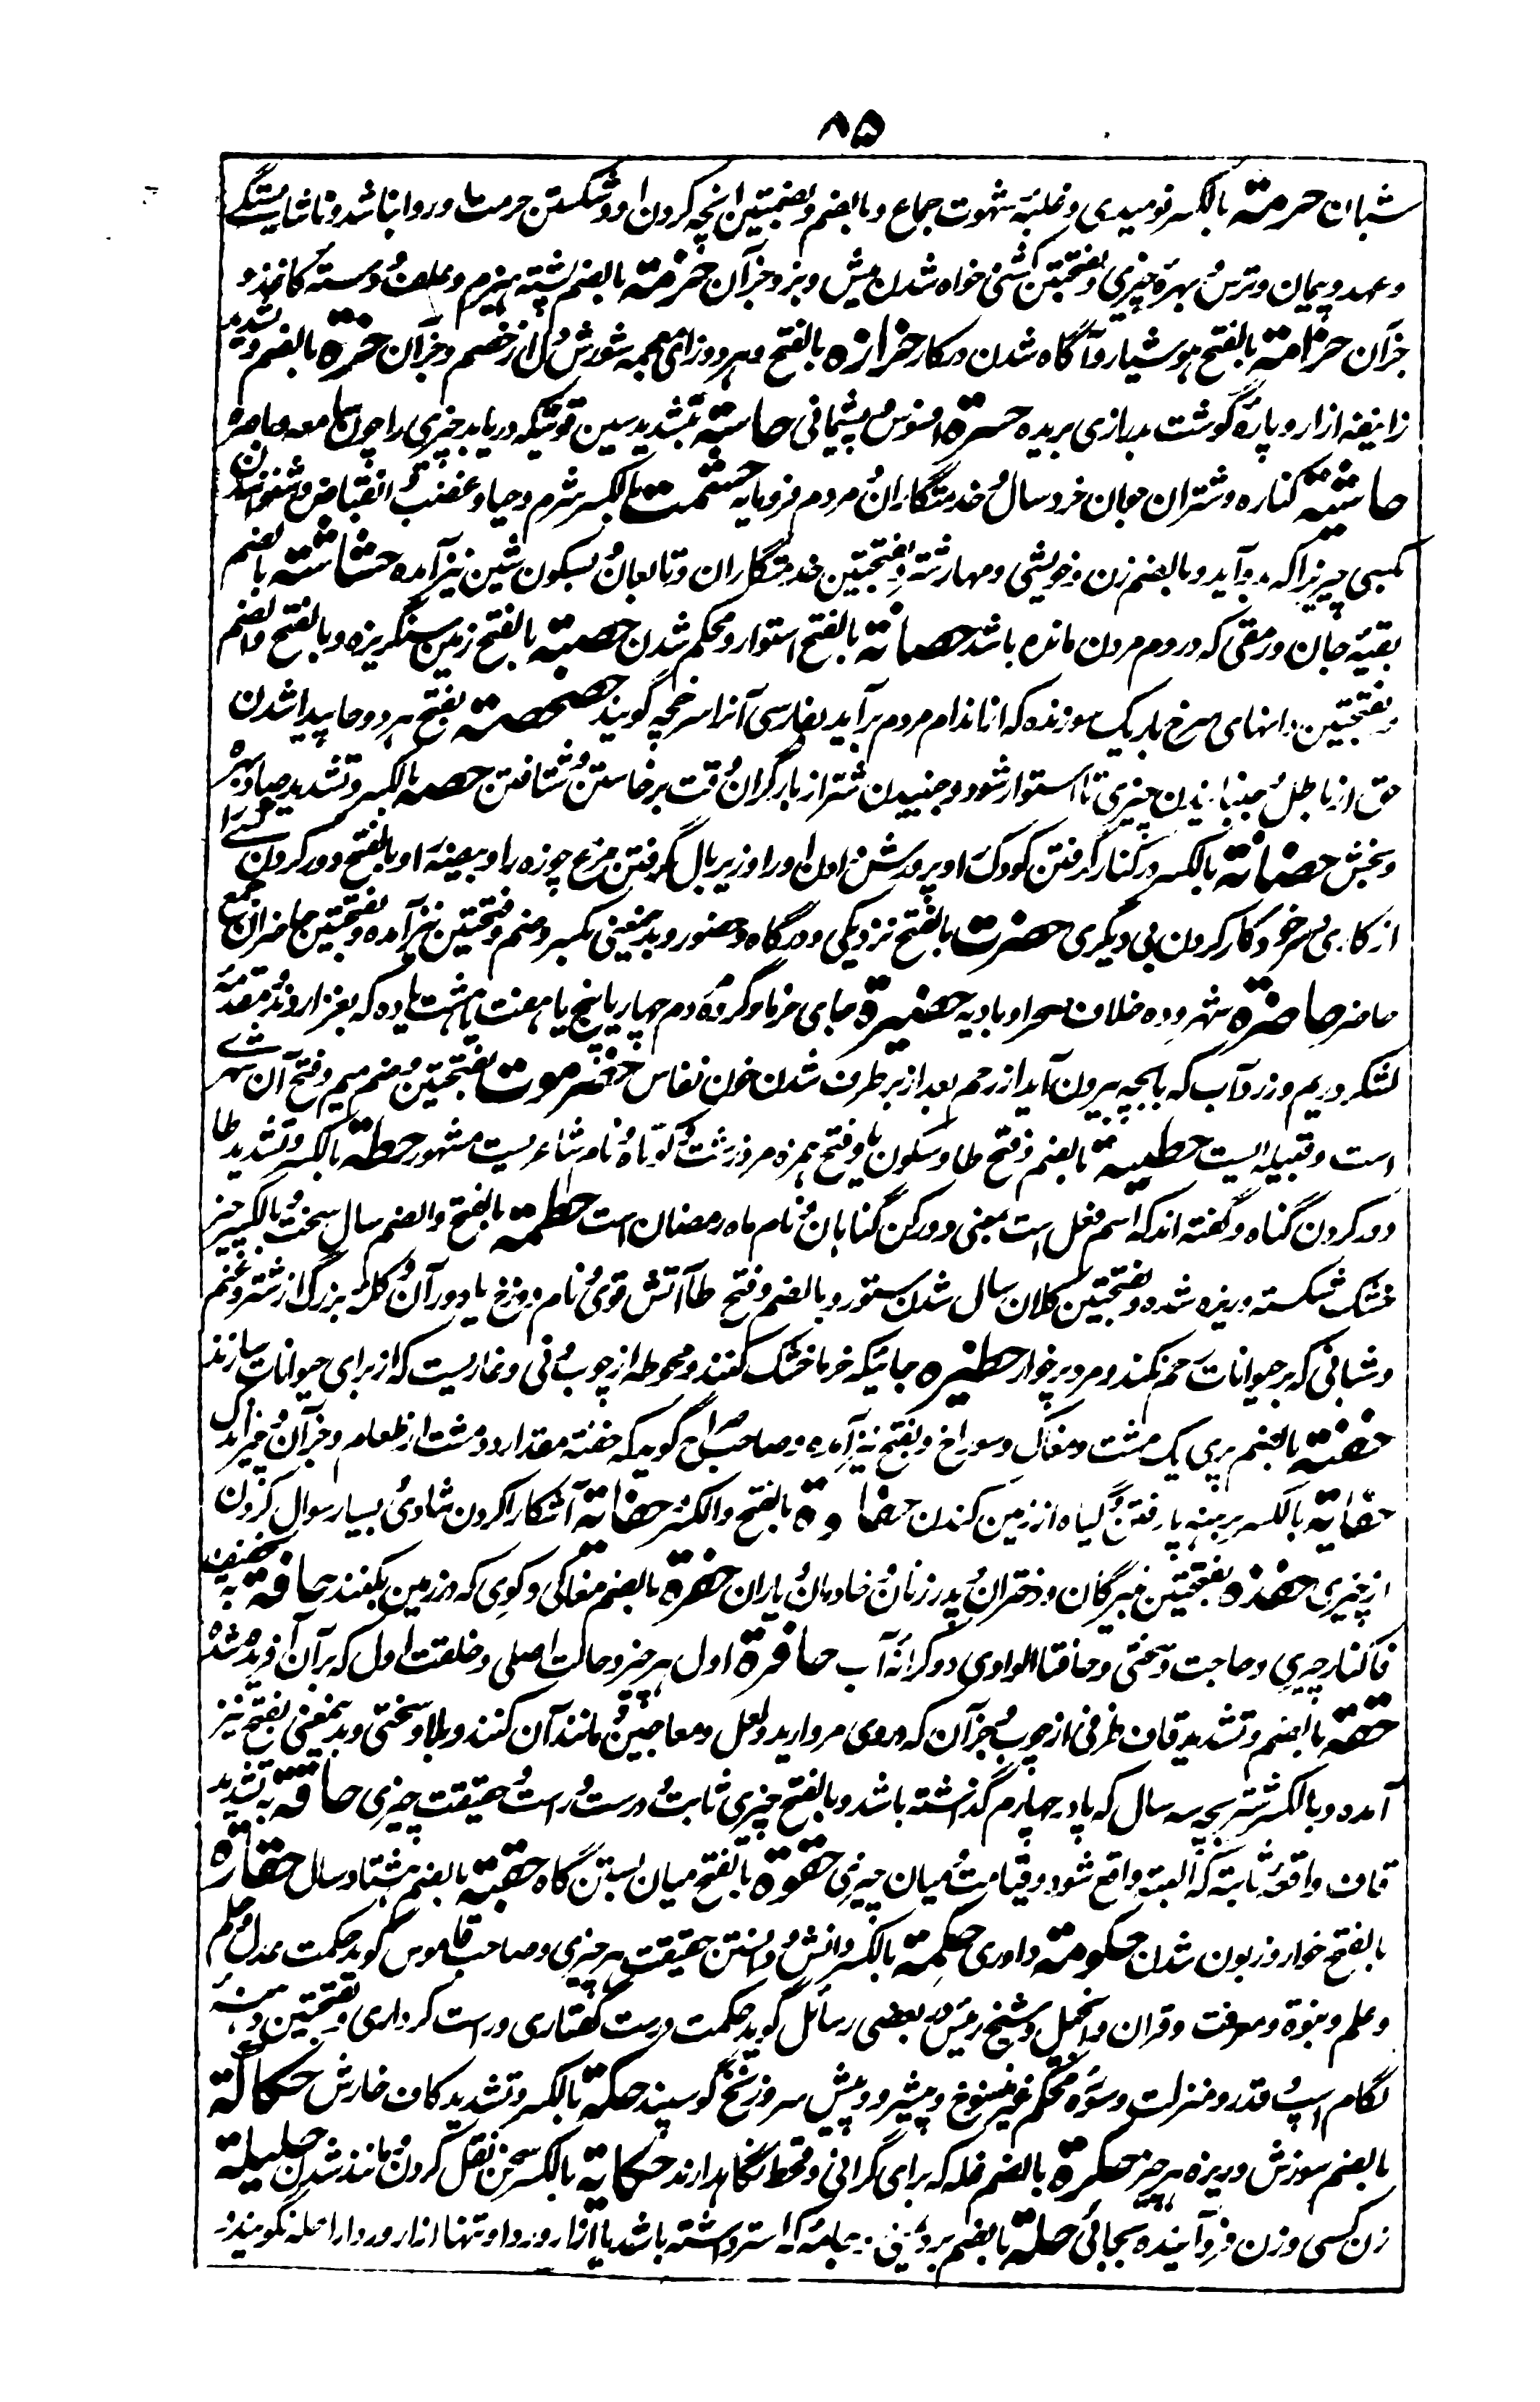 ۸۵
شبان حرمة بالکسر نومیدی و غلبۀ شهوت جماع و بالضم و بضمتین آنچه کردن او و شکستن حرمت و روا نباشد و ناشایستگی
و عهد و پیمان و ترس و بهرۀ چیزی و بفتحتین کشنی خواه شدن میش و بز و جز آن حزمة بالضم پشتۀ هیزم و علف و دستۀ کاغذ و
جز آن حزامة بالفتح هوشیار و آگاه شدن در کار حزازه بالفتح و هر دو زای معجمه شورش دل از خصم و جز آن حزة بالضم و تشدید
زا نیفۀ ازار و پارۀ گوشت بدرازی بریده حسرة افسوس و پشیمانی حاسة بتشدید سین قوتیکه دریابد چیزی را چون سامعه و باصره
حاشیة کناره و شتران جوان خرد سال و خدمتگاران و مردم فرومایه حشمت بالکسر شرم و حیا و غضب و انقباض و شنوانیدن
کسی چیزیرا که بد آید و بالضم زن و خویشی و مهارشته و بفتحتین خدمتگاران و تابعان و بسکون شین نیز آمده حشاشة بالضم
بقیۀ جان و رمقی که در دم مردن مانده باشد حصانة بالفتح استوار و محکم شدن حصبة بالفتح زمین سنگریزه و بالفتح و الضم
و بفتحتین دانهای سرخ باریک سوزنده که از اندام مردم برآید بفارسی آنرا سرخچه گویند حصحصة بفتح هر دو حا پیدا شدن
حق از باطل و جنبانیدن چیزی تا استوار شود و جنبیدن شتر از بار گران وقت برخاستن و شتافتن حصه بالکسر و تشدید صاد بهره
و بخش حضانة بالکسر در کنار گرفتن کودک و پرورش دادن او را و زیر بال گرفتن مرغ چوزه را و بیضۀ او و بالفتح دور کردن کسی را
از کاری و سر خود کار کردن بی دیگری حضرت بالفتح نزدیکی و درگاه و حضور و بدینمعنی بکسر و ضم و فتحتین نیز آمده و بفتحتین حاضران جمع
حاضر حاضرة شهر و ده خلاف صحرا و بادیه حضیرة جای خرما و گروه مردم چهار یا پنج یا هفت یا هشت یا ده که بغزا روند و مقدمۀ
لشکر و ریم و زرداب که با بچه بیرون آید از رحم بعد از برطرف شدن خون نفاس حضرموت بفتحتین و ضم میم و فتح آن شهری
است و قبیله ایست حطیئة بالضم و فتح طا و سکون یا و فتح همزه مرد زشت و کوتاه و نام شاعریست مشهور حطة بالکسر و تشدید طا
دور کردن گناه و گفته اند که اسم فعل است بمعنی دور کن گناهان و نام ماه رمضان است حطمة بالفتح و الضم سال سخت و بالکسر چیز
خشک شکسته و ریزه شده و بفتحتین کلان سال شدن ستور و بالضم و فتح طا آتش قوی و نام دوزخ یا در آن و کلۀ بزرگ از شتر و غنم
و شبانی که بر حیوانات رحم نکند و مرد پرخوار حظیره جائیکه خرما خشک کنند و محوطه از چوب و نی و خاریست که از برای حیوانات سازند
حفنة بالضم پری یک مشت و مغاک و سوراخ و بفتح نیز آمده و صاحب صراح گوید که حفنه مقدار دو مشت از طعام و جز آن و چیز اندک
حفایة بالکسر برهنه پا رفتن و گیاه از زمین کندن حفاوة بالفتح و الکسر حفایة آشکارا کردن شادی و بسیار سوال کردن
از چیزی حفده بفتحتین نبیرگان و دختران و پدر زنان و خادمان و یاران حفرة بالضم مغاکی و گوی که در زمین بکنند حافة به تخفیف
فا کنار چیزی و حاجت و سختی و حافتا الوادی دو کرانۀ آب حافرة اول هر چیز و حالت اصلی و خلقت اول که بر آن آفریده شده
حقه بالضم و تشدید قاف ظرفی از چوب و جز آن که در وی مروارید و لعل و معاجین و مانند آن کنند و بلا و سختی و بدینمعنی بفتح نیز
آمده و بالکسر شتر بچه سه سال که پا در چهارم گذاشته باشد و بالفتح چیزی ثابت و درست و راست و حقیقت چیزی حاقة به تشدید
قاف واقعۀ ثابتة که البته واقع شود و قیامت و میان چیزی حقوة بالفتح میان بستن گاه حقبة بالضم هشتاد سال حقارة
بالفتح خوار و زبون شدن حکومة داوری حکمة بالکسر دانش و دانستن حقیقت هر چیزی و صاحب قاموس گوید حکمت عدل و حلم
و علم و نبوة و معرفت و قرآن و انجیل و شیخ رئیس در بعضی رسائل گوید حکمت درست گفتاری و راست کرداری و بفتحتین دهنۀ
لگام اسپ و قدر و منزلت و سورۀ محکم غیر منسوخ و پیشرو و پیش سر و زنخ گوسپند حکة بالکسر و تشدید کاف خارش حکاکة
بالضم سوزش و ریزه هر چیز حکرة بالضم غله که برای گرانی و قحط نگاهدارند حکایة بالکسر سخن نقل کردن و مانند شدن حلیلة
زن کسی و زن فرود آینده بجائی حلة بالضم برد یمنی و جامۀ که استر داشته باشد یا ازار و ردا و تنها ازار و ردا را حله نگویند و